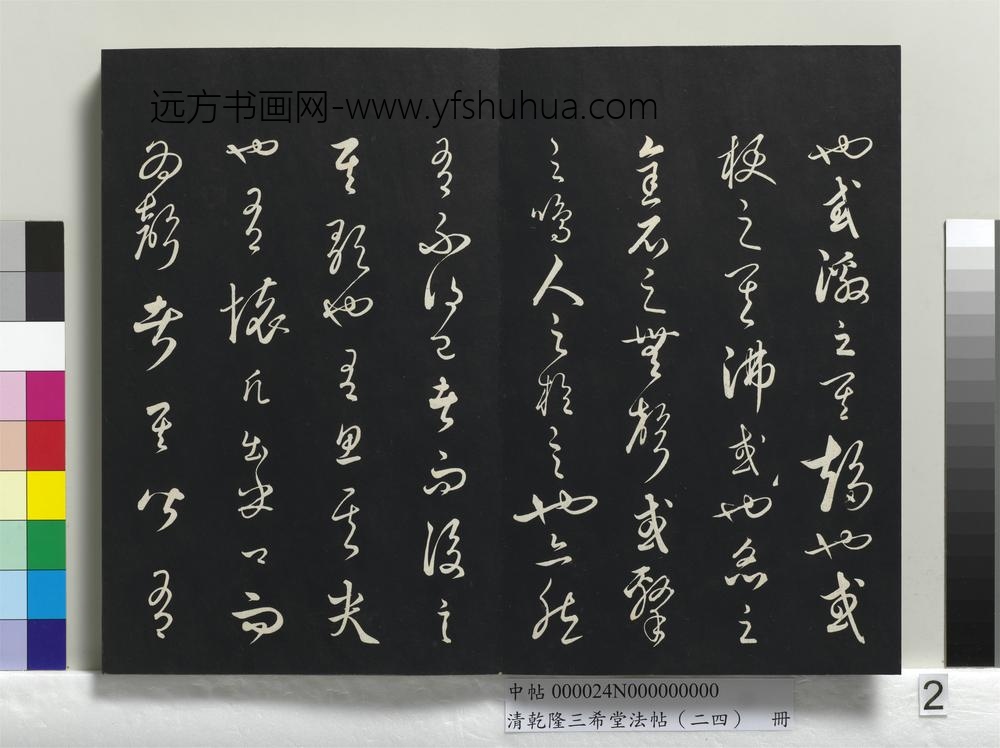 远方书画网-www.yfshuhua.com
也或激之其趨也或
梗之其沸或也炙之
金石之無聲或擊
之鳴人之於言也亦然
有不得已者而後言
其歌也有思其哭
也有懷凡出乎口而
為聲者其皆有
中帖 000024N000000000
清乾隆三希堂法帖（二四） 冊
2